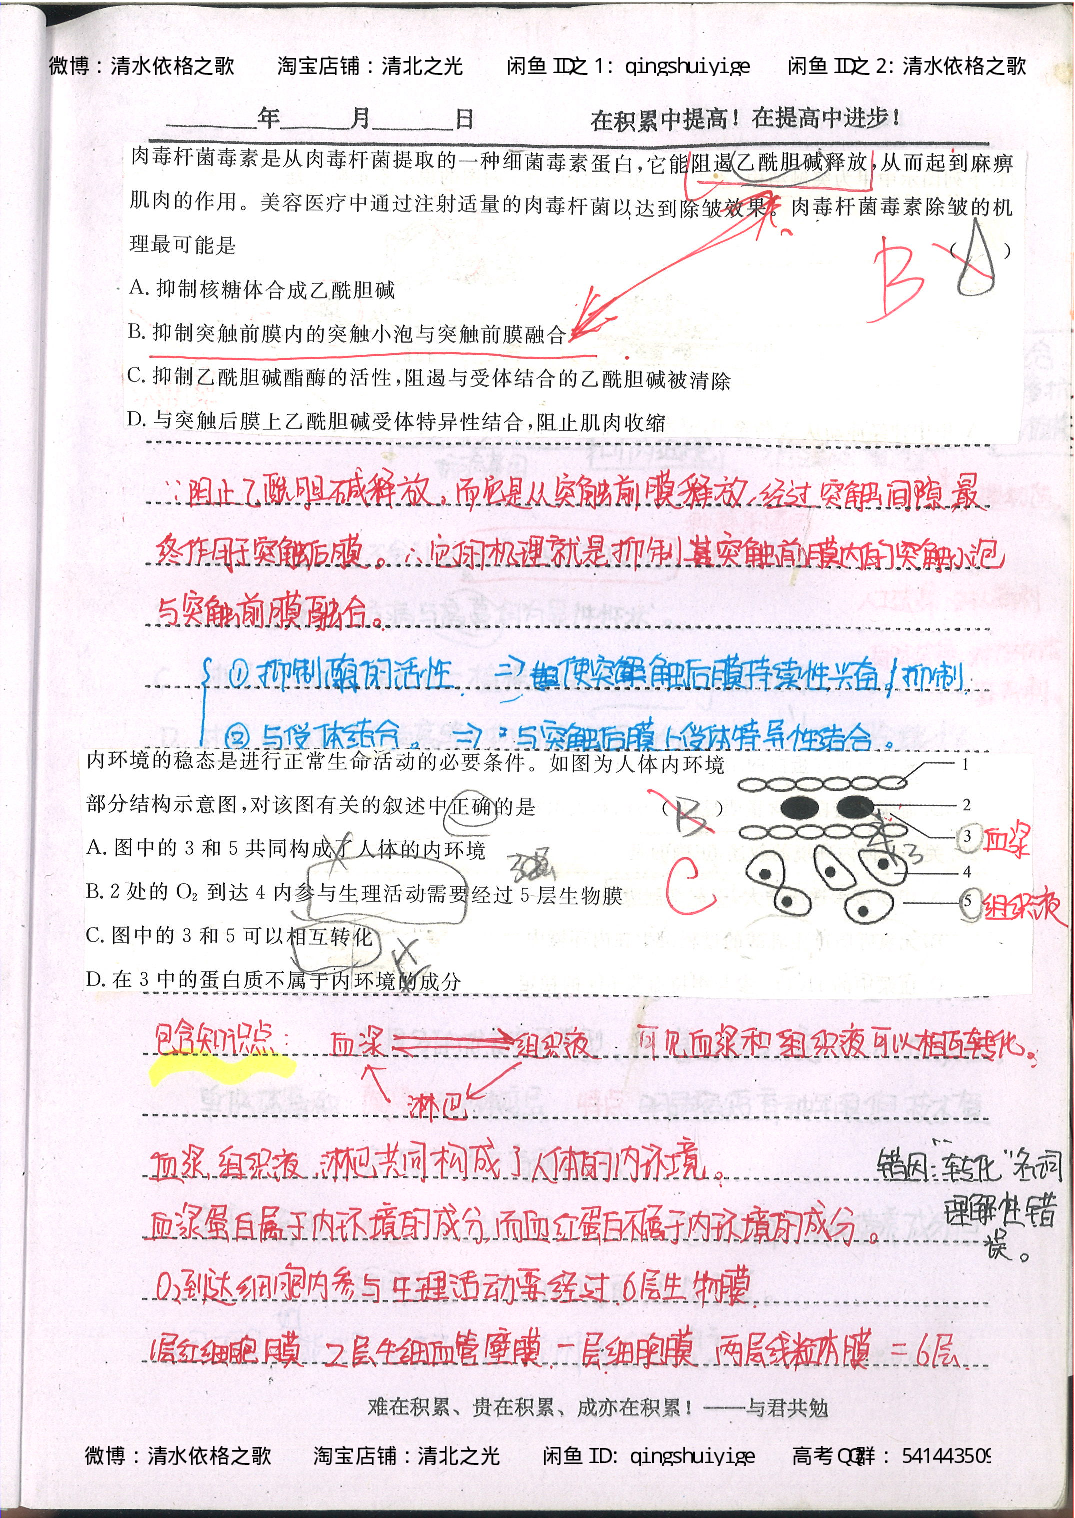 微博：清水依格之歌 淘宝店铺：清北之光 闲鱼ID之1：qingshuiyige 闲鱼ID之2：清水依格之歌
年 月 日 在积累中提高！在提高中进步！
肉毒杆菌毒素是从肉毒杆菌提取的一种细菌毒素蛋白，它能阻遏乙酰胆碱释放，从而起到麻痹
肌肉的作用。美容医疗中通过注射适量的肉毒杆菌以达到除皱效果。肉毒杆菌毒素除皱的机
理最可能是 （ ）
B
A. 抑制核糖体合成乙酰胆碱
B. 抑制突触前膜内的突触小泡与突触前膜融合
C. 抑制乙酰胆碱酯酶的活性，阻遏与受体结合的乙酰胆碱被清除
D. 与突触后膜上乙酰胆碱受体特异性结合，阻止肌肉收缩
∵阻止乙酰胆碱释放。而它是从突触前膜释放，经过突触间隙，最
终作用于突触后膜。∴它的机理就是抑制其突触前膜内的突触小泡
与突触前膜融合。
①抑制酶的活性 ⇒ 使突触后膜持续性兴奋/抑制
②与受体结合。⇒：与突触后膜上受体特异性结合。
内环境的稳态是进行正常生命活动的必要条件。如图为人体内环境
部分结构示意图，对该图有关的叙述中正确的是 （B）
C
A. 图中的 3 和 5 共同构成了人体的内环境
B. 2 处的 O₂ 到达 4 内参与生理活动需要经过 5 层生物膜
C. 图中的 3 和 5 可以相互转化
D. 在 3 中的蛋白质不属于内环境的成分
1
2
3 血浆
4
5 组织液
包含知识点： 血浆 ⇌ 组织液 可见血浆和组织液可以相互转化。
淋巴
血浆、组织液、淋巴共同构成了人体的内环境。
错因：“转化”名词
理解性错
误。
血浆蛋白属于内环境的成分，而血红蛋白不属于内环境的成分。
O₂到达细胞内参与生理活动要经过6层生物膜
1层红细胞膜 2层毛细血管壁膜 一层细胞膜 两层线粒体膜 = 6层
难在积累、贵在积累、成亦在积累！——与君共勉
微博：清水依格之歌 淘宝店铺：清北之光 闲鱼ID：qingshuiyige 高考QQ群：541443509